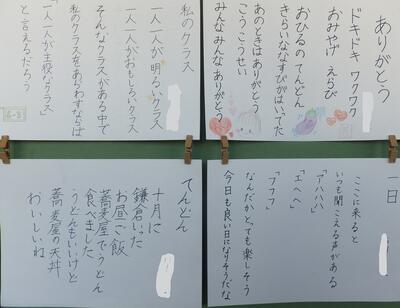 ありがとう
ドキドキ ワクワク
おみやげ えらび
おひるの てんどん
きらいななすびがはいってた
あのときは ありがとう
こうこうせい
みんなみんな ありがとう
私のクラス
一人一人が明るいクラス
一人一人がおもしろいクラス
そんなクラスがある中で
私のクラスをあらわすならば
「一人一人が主役なクラス」
と言えるだろう
一日
ここに来ると
いつも聞こえる声がある
「アハハハ」
「エヘヘ」
「フフフ」
なんだかとっても楽しそう
今日も良い日になりそうだな
てんどん
十月に
鎌倉いった
お昼ご飯
蕎麦屋でうどん
食べました
うどんもいいけど
蕎麦屋の天丼
おいしいね